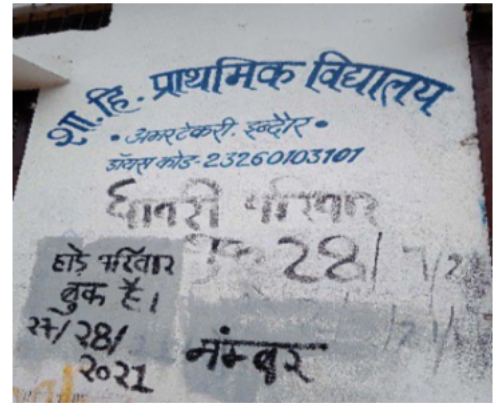 शा. हि. प्राथमिक विद्यालय
• अमरटेकरी. इन्दौर •
डॉयस कोड-23260103101
धावरी परिवार
बुक 28/
हाड़े परिवार
बुक है।
27/28/
2021
नंम्बर